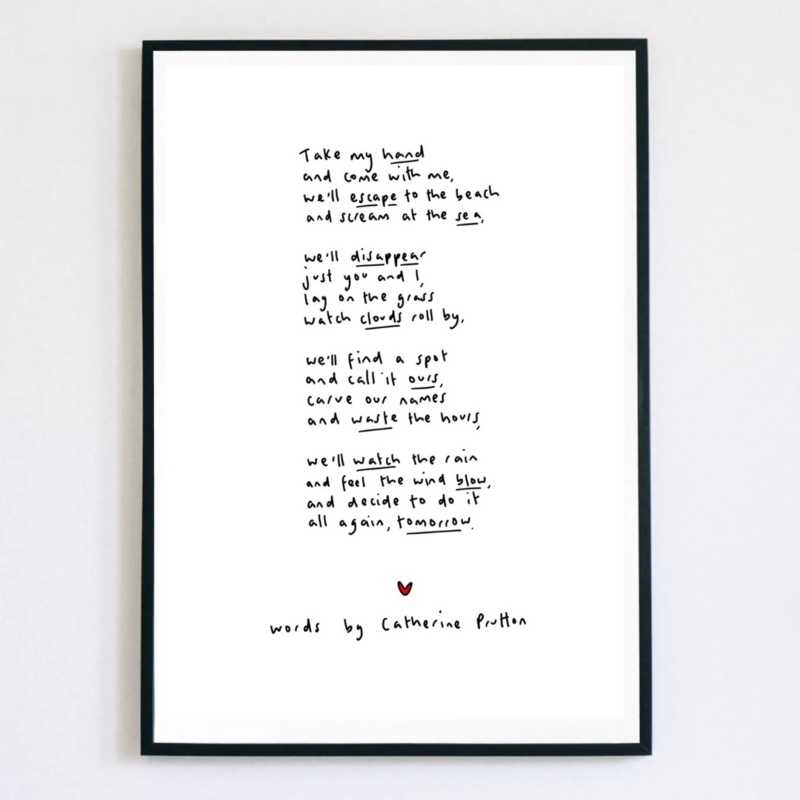 Take my hand
and come with me,
we'll escape to the beach
and scream at the sea,
we'll disappear
just you and I,
lay on the grass
watch clouds roll by,
we'll find a spot
and call it ours,
carve our names
and waste the hours,
we'll watch the rain
and feel the wind blow,
and decide to do it
all again, tomorrow.
words by Catherine Prutton